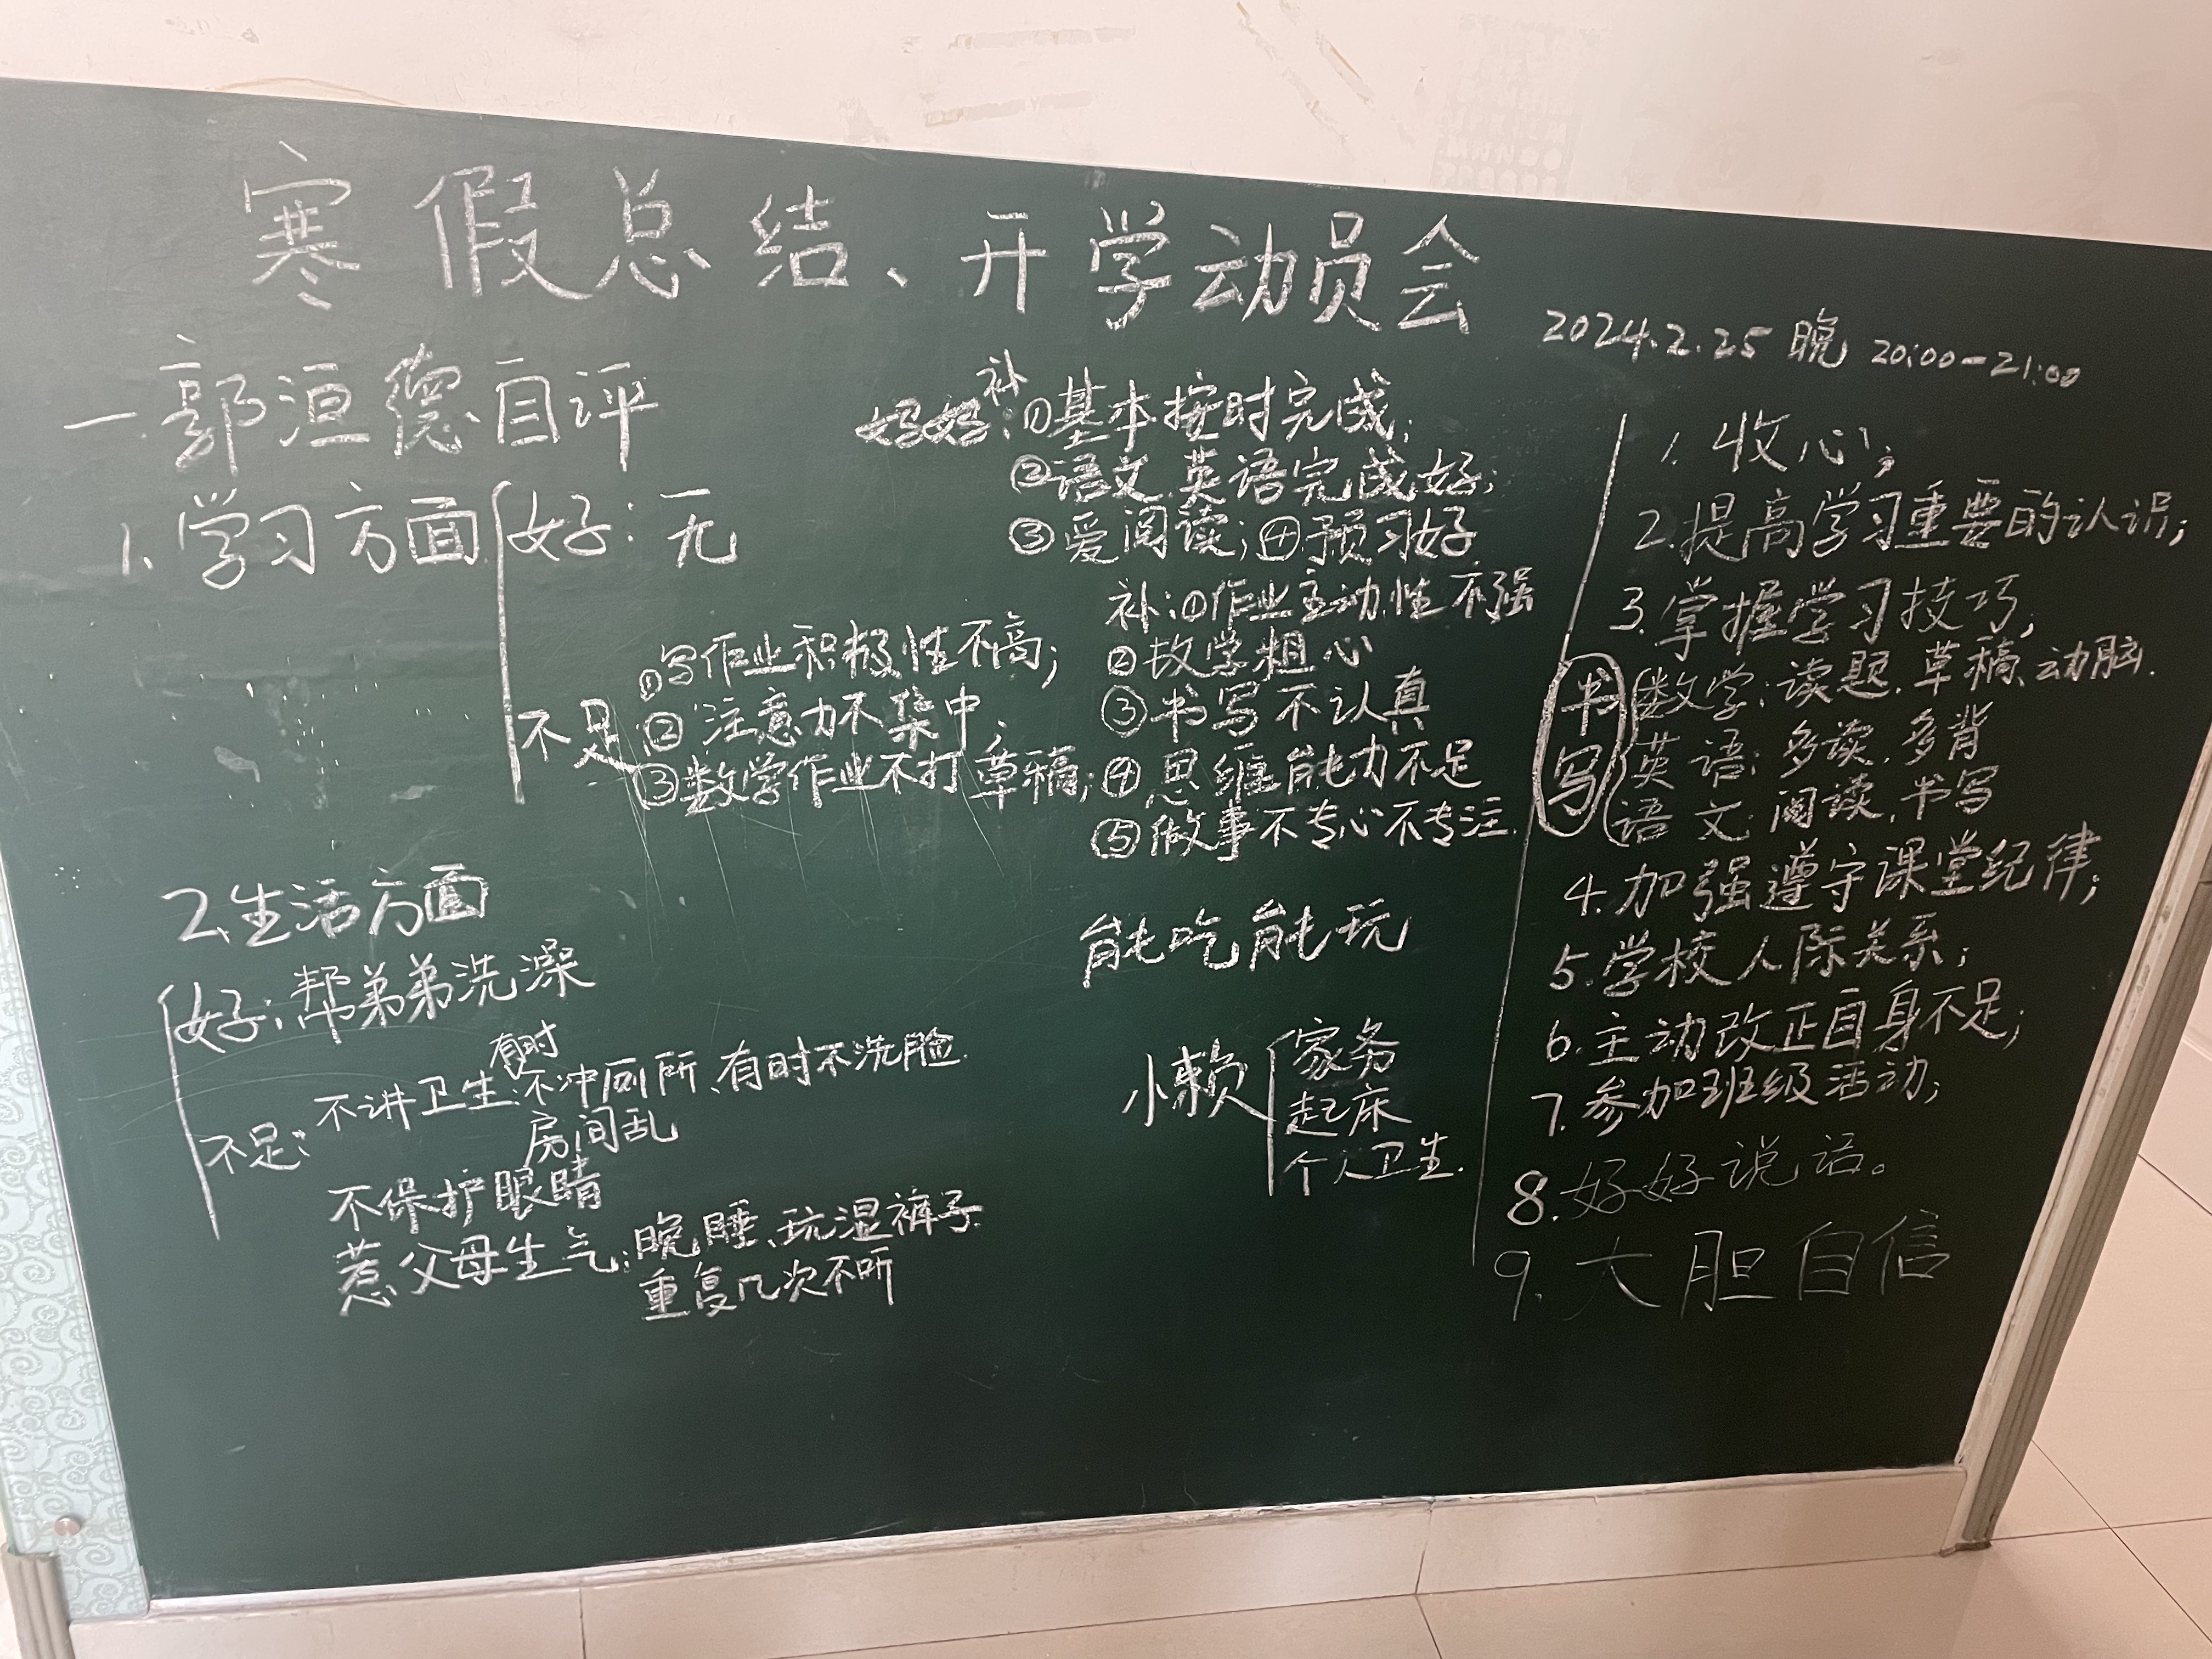 寒假总结、开学动员会
2024.2.25 晚 20:00-21:00
一.郭洹德自评
1.学习方面
好:无
妈妈补:①基本按时完成;
②语文.英语完成好;
③爱阅读;④预习好
不足
①写作业积极性不高;
②注意力不集中;
③数学作业不打草稿;
补:①作业主动性不强
②数学粗心
③书写不认真
④思维能力不足
⑤做事不专心不专注.
2.生活方面
好:帮弟弟洗澡
能吃能玩
不足:
不讲卫生:有时不冲厕所、有时不洗脸.
房间乱
不保护眼睛
惹父母生气:晚睡、玩湿裤子
重复几次不听
小懒
家务
起床
个人卫生.
1.收心;
2.提高学习重要的认识;
3.掌握学习技巧;
书写
数学:读题.草稿、动脑.
英语:多读.多背
语文:阅读.书写
4.加强遵守课堂纪律;
5.学校人际关系;
6.主动改正自身不足;
7.参加班级活动;
8.好好说话。
9.大胆自信